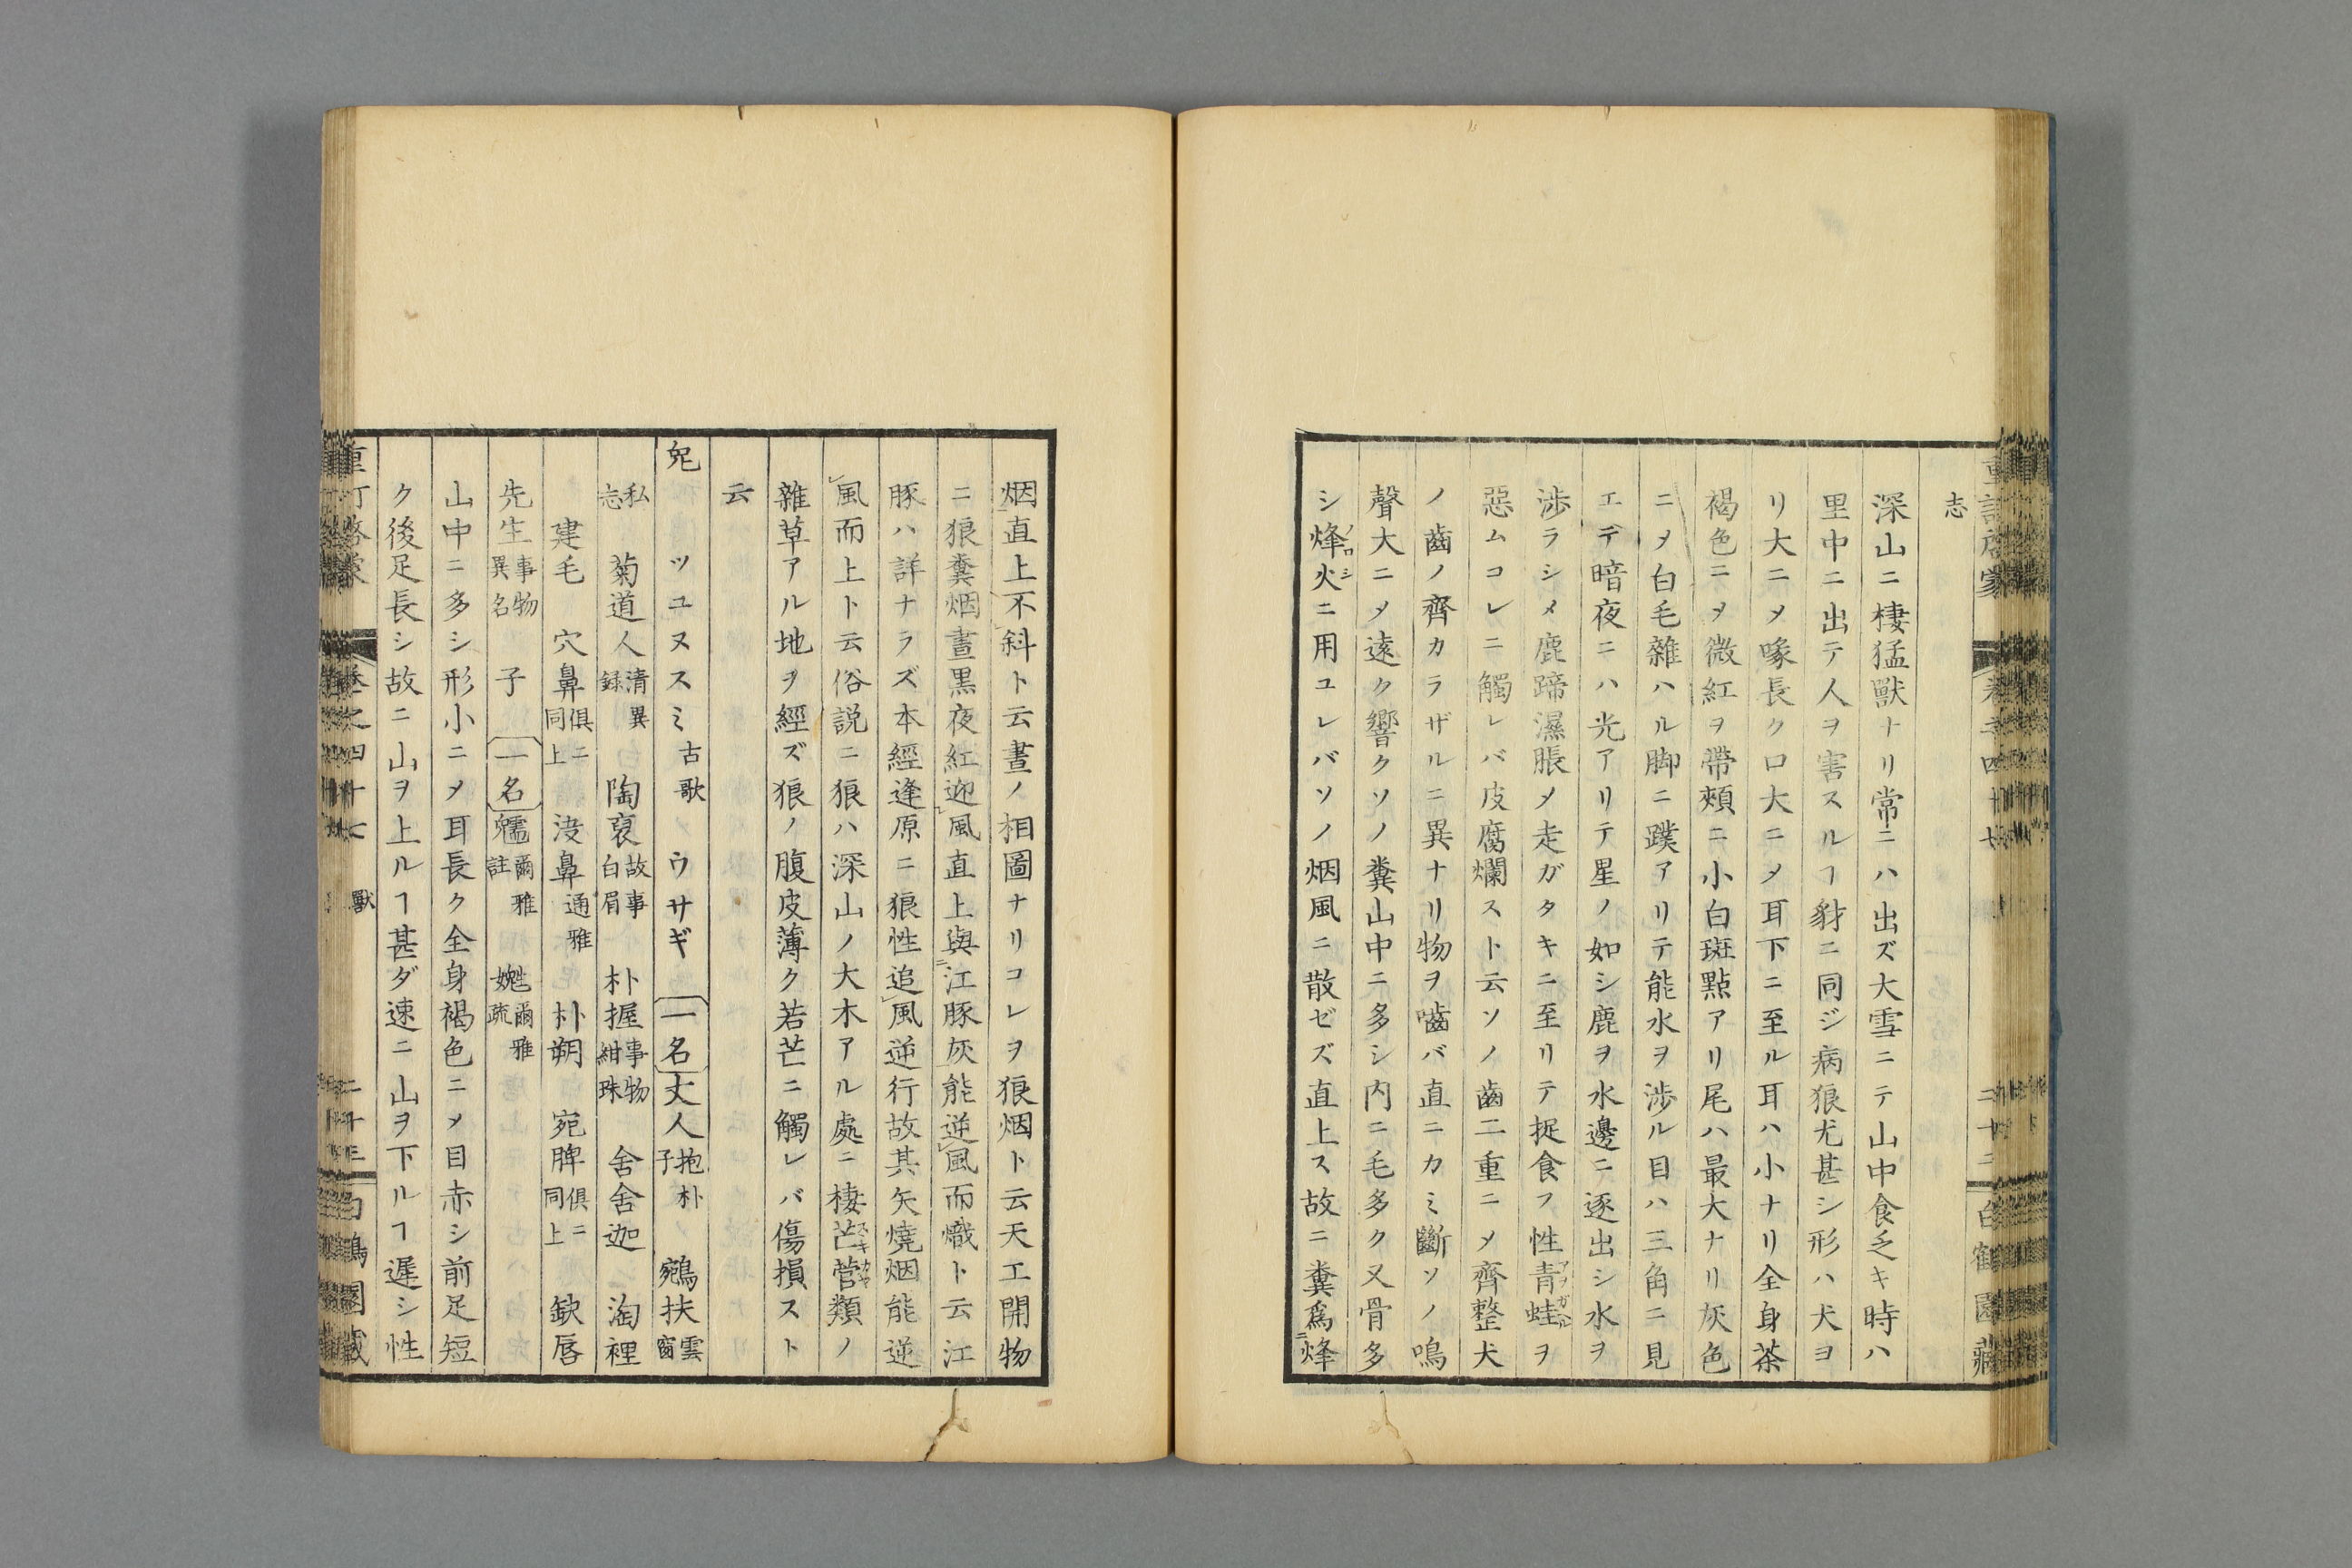 志
深山ニ棲猛獸ナリ常ニハ出ズ大雪ニテ山中食乏キ時ハ
里中ニ出テ人ヲ害スルヿ豺ニ同ジ病狼尤甚シ形ハ犬ヨ
リ大ニメ喙長ク口大ニメ耳下ニ至ル耳ハ小ナリ全身茶
褐色ニヲ微紅ヲ帶頰ニ小白斑點アリ尾ハ最大ナリ灰色
ニメ白毛雜ハル脚ニ蹼アリテ能水ヲ渉ル目ハ三角ニ見
エデ暗夜ニハ光アリテ星ノ如シ鹿ヲ水邊ニ逐出シ水ヲ
渉ラシメ鹿蹄濕脹メ走ガタキニ至リテ捉食フ性青蛙ヲ
惡ムコレニ觸レバ皮腐爛スト云ソノ齒二重ニメ齊整犬
ノ齒ノ齊カラザルニ異ナリ物ヲ嚙バ直ニカミ斷ソノ鳴
聲大ニメ遠ク響クソノ糞山中ニ多シ内ニ毛多ク又骨多
シ烽火ニ用ユレバソノ烟風ニ散ゼズ直上ス故ニ糞爲烽
烟直上不斜ト云晝ノ相圖ナリコレヲ狼烟ト云天工開物
ニ狼糞烟晝黒夜紅迎風直上與江豚灰能逆風而熾ト云江
豚ハ詳ナラズ本經逢原ニ狼性追風逆行故其矢燒烟能逆
風而上ト云俗説ニ狼ハ深山ノ大木アル處ニ棲芒菅類ノ
雜草アル地ヲ經ズ狼ノ腹皮薄ク若芒ニ觸レバ傷損スト
云
兎 ツユヌスミ古歌 ウサギ 一名 丈人抱朴子 鵷扶雲窗
私志 菊道人清異録 陶裒故事白眉 朴握事物紺珠 舍舍迦 淘裡
建毛 穴鼻俱ニ同上 沒鼻通雅 朴朔 宛脾俱ニ同上 缺唇
先生事物異名 子 一名 䨲爾雅註 㜸爾雅疏
山中ニ多シ形小ニメ耳長ク全身褐色ニメ目赤シ前足短
ク後足長シ故ニ山ヲ上ルヿ甚ダ速ニ山ヲ下ルヿ遲シ性
重訂啓蒙 卷之四十七 獸 二十三